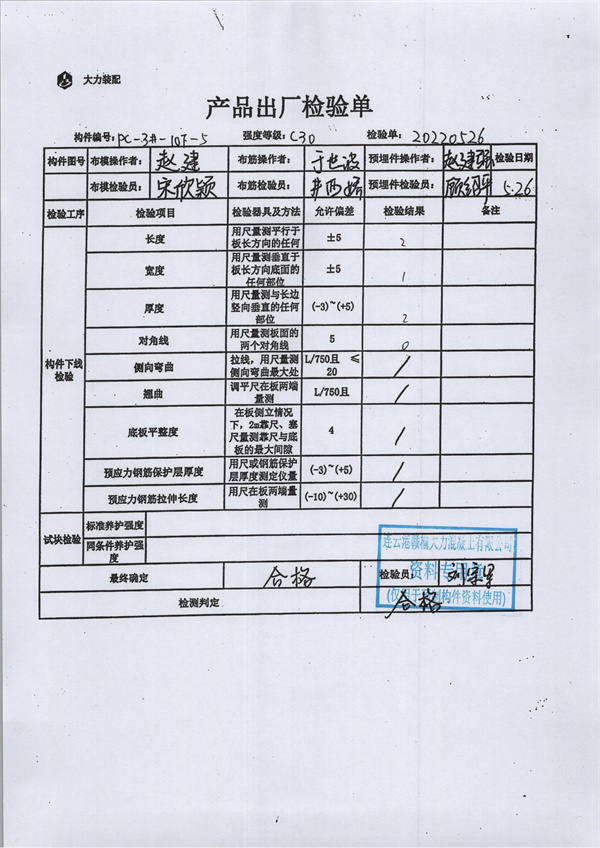 大力装配
产品出厂检验单
构件编号：PC-3#-10F-5 强度等级：C30 检验单：20220526
构件图号 布模操作者：赵建 布筋操作者：于世波 预埋件操作者：赵建强 检验日期
布模检验员：宋欣颖 布筋检验员： 预埋件检验员： 5.26
检验工序 检验项目 检验器具及方法 允许偏差 检验结果 备注
构件下线检验
长度 用尺量测平行于板长方向的任何 ±5 2
宽度 用尺量测垂直于板长方向底面的任何部位 ±5 1
厚度 用尺量测与长边竖向垂直的任何部位 (-3)~(+5) 2
对角线 用尺量测板面的两个对角线 5 0
侧向弯曲 拉线，用尺量测侧向弯曲最大处 L/750且 ≤20 /
翘曲 调平尺在板两端量测 L/750且 /
底板平整度 在板侧立情况下，2m靠尺、塞尺量测靠尺与底板的最大间隙 4 /
预应力钢筋保护层厚度 用尺或钢筋保护层厚度测定仪量 (-3)~(+5) /
预应力钢筋拉伸长度 用尺在板两端量测 (-10)~(+30) /
试块检验 标准养护强度
同条件养护强度
最终确定 合格 检验员：
检测判定 合格
连云港赣榆大力混凝土有限公司
资料专用章
(仅用于预制构件资料使用)